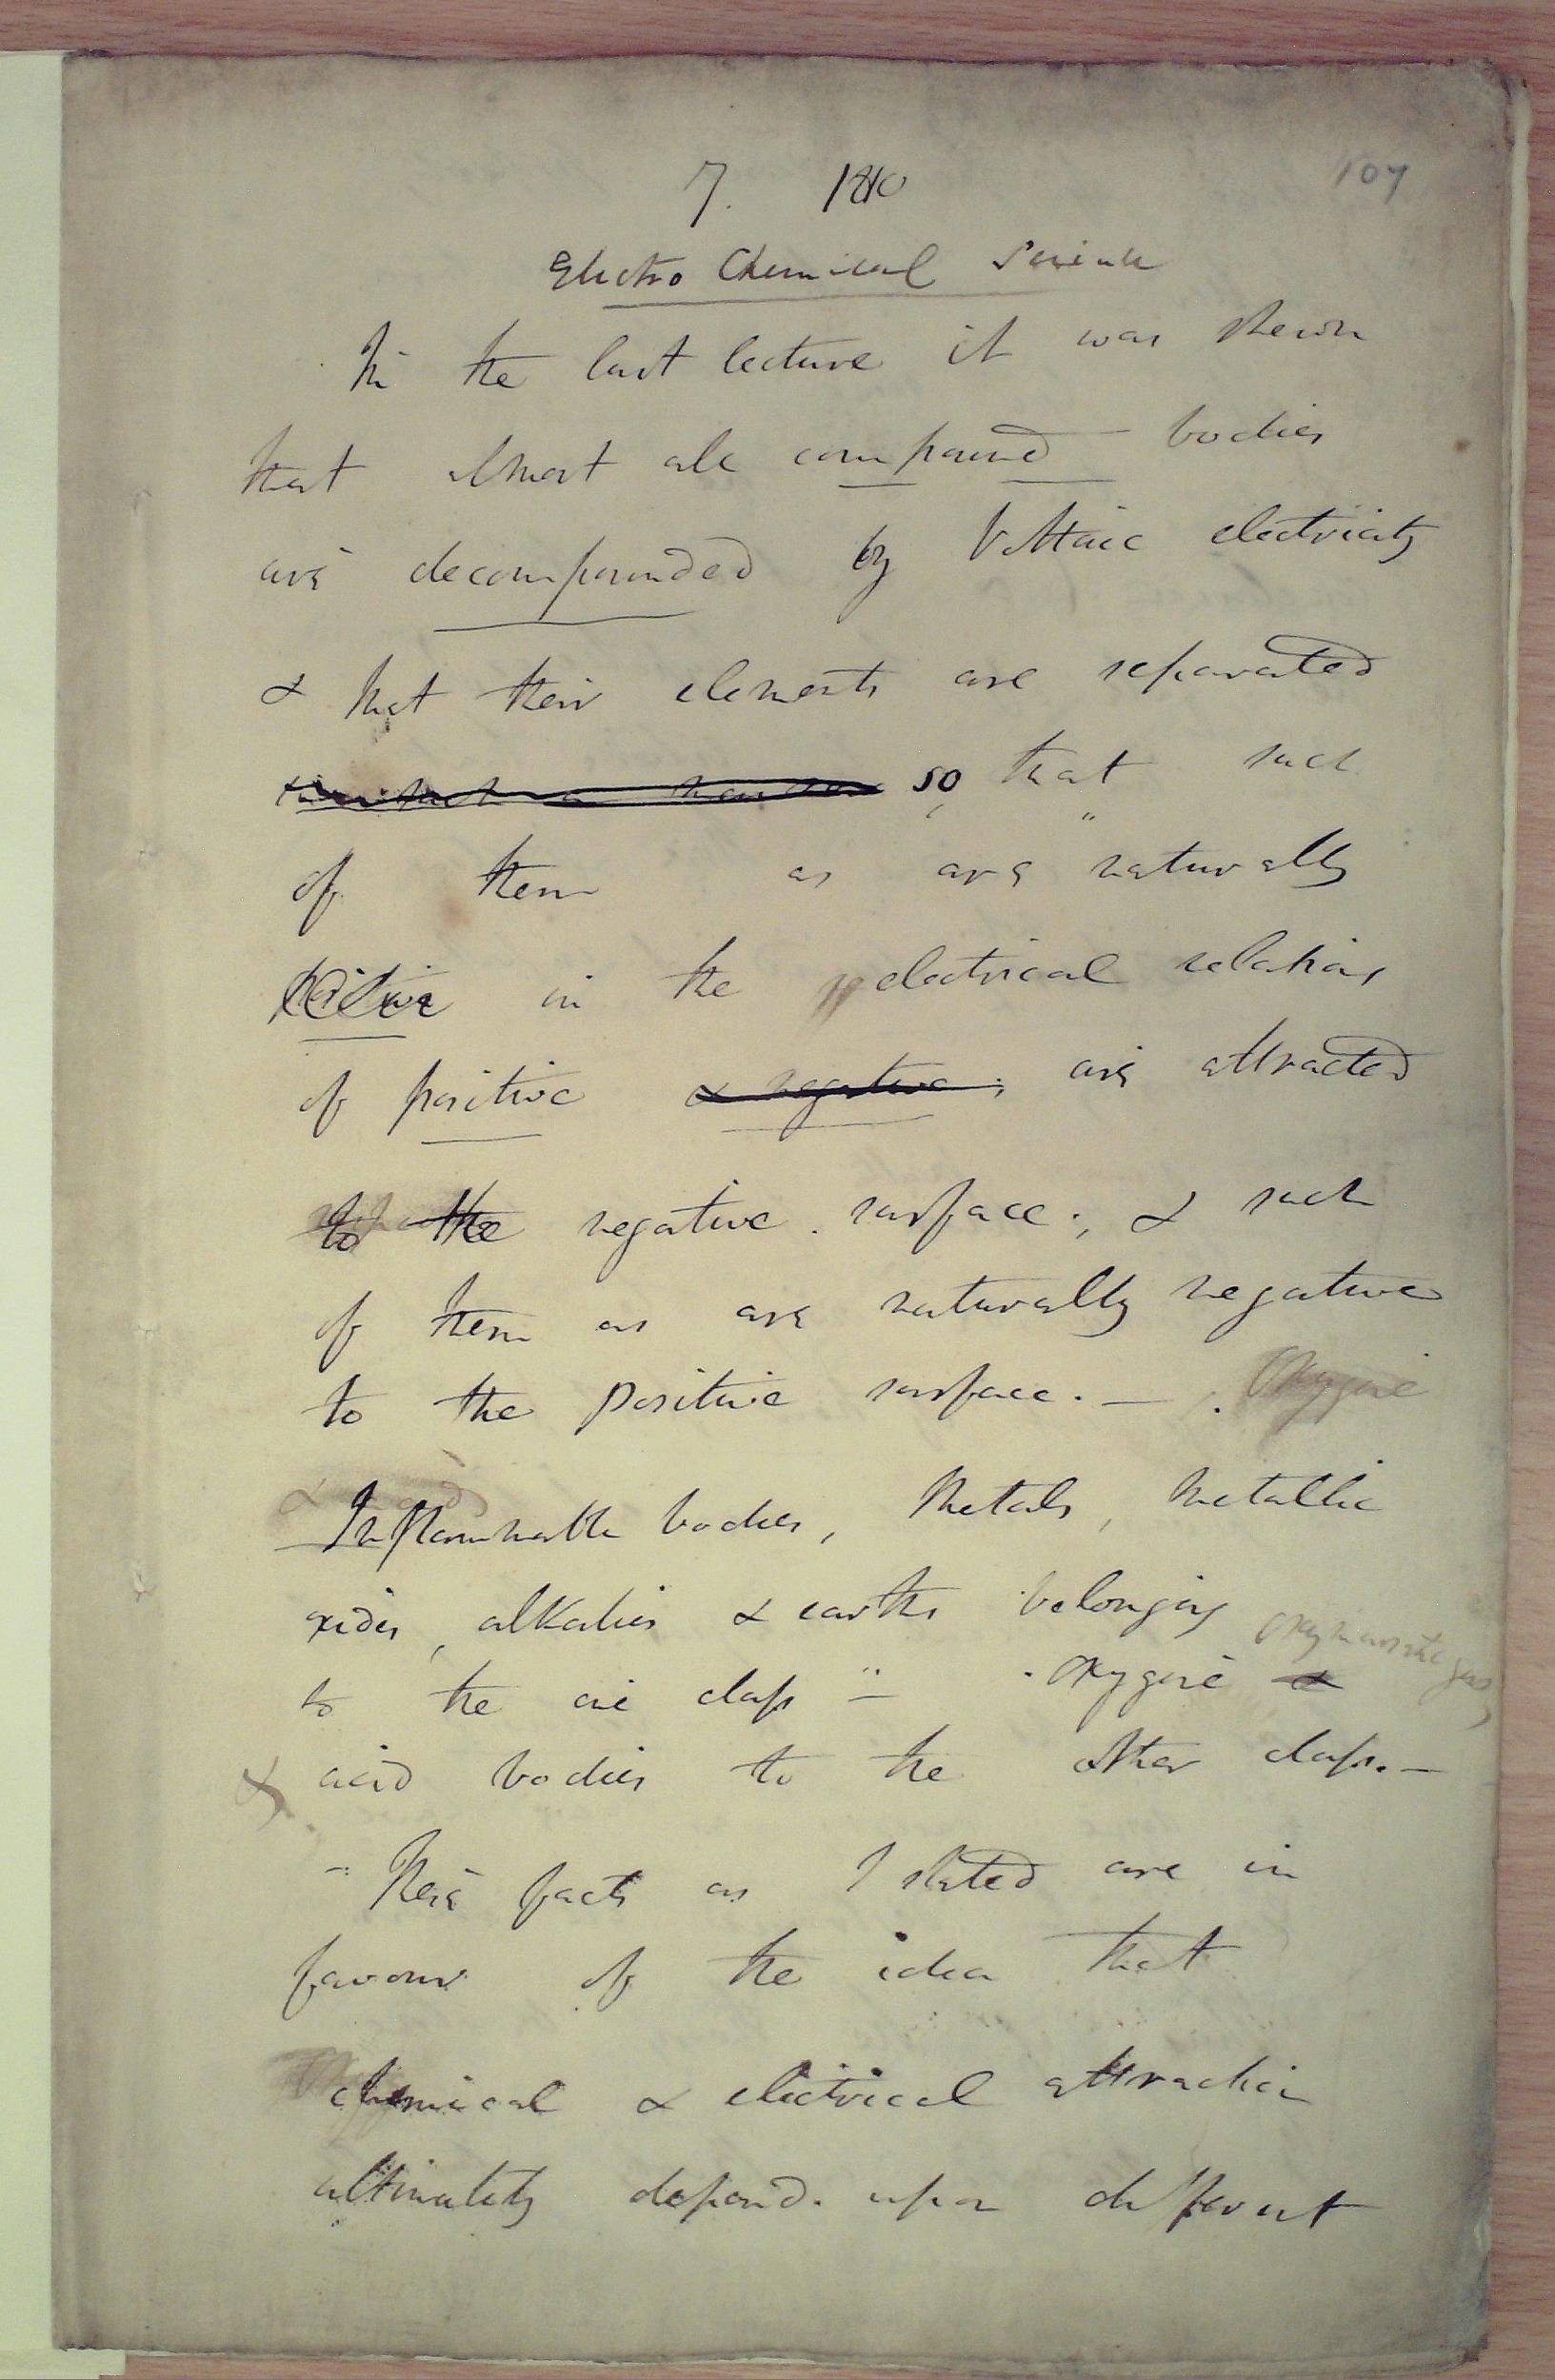 7. 1810
107
Electro Chemical Science
In the last lecture it was shewn
that almost all compound bodies
are decompounded by Voltaic electricity
& that their elements are separated
in such a manner so that such
of them as are naturally
positive in the electrical relations
of positive & negative; are attracted
to the negative surface; & such
of them as are naturally negative
to the positive surface. — Oxygene
& acid
Inflammable bodies, Metals, Metallic
oxides, alkalies & earths belonging
oxymuriatic gas,
to the one class — Oxygene &
& acid bodies to the other class. —
These facts as I stated are in
favour of the idea that
chemical & electrical attraction
ultimately depend upon different